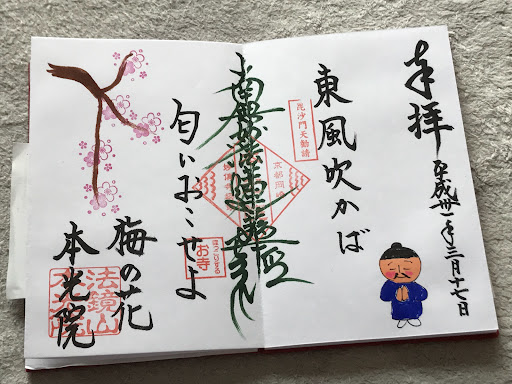 奉拝
平成卅一年三月十七日
東風吹かば
毘沙門天勧請
京都岡崎
南無妙法蓮華経
匂いおこせよ
ほっこりする
お寺
梅の花
本光院
法鏡山
本光院